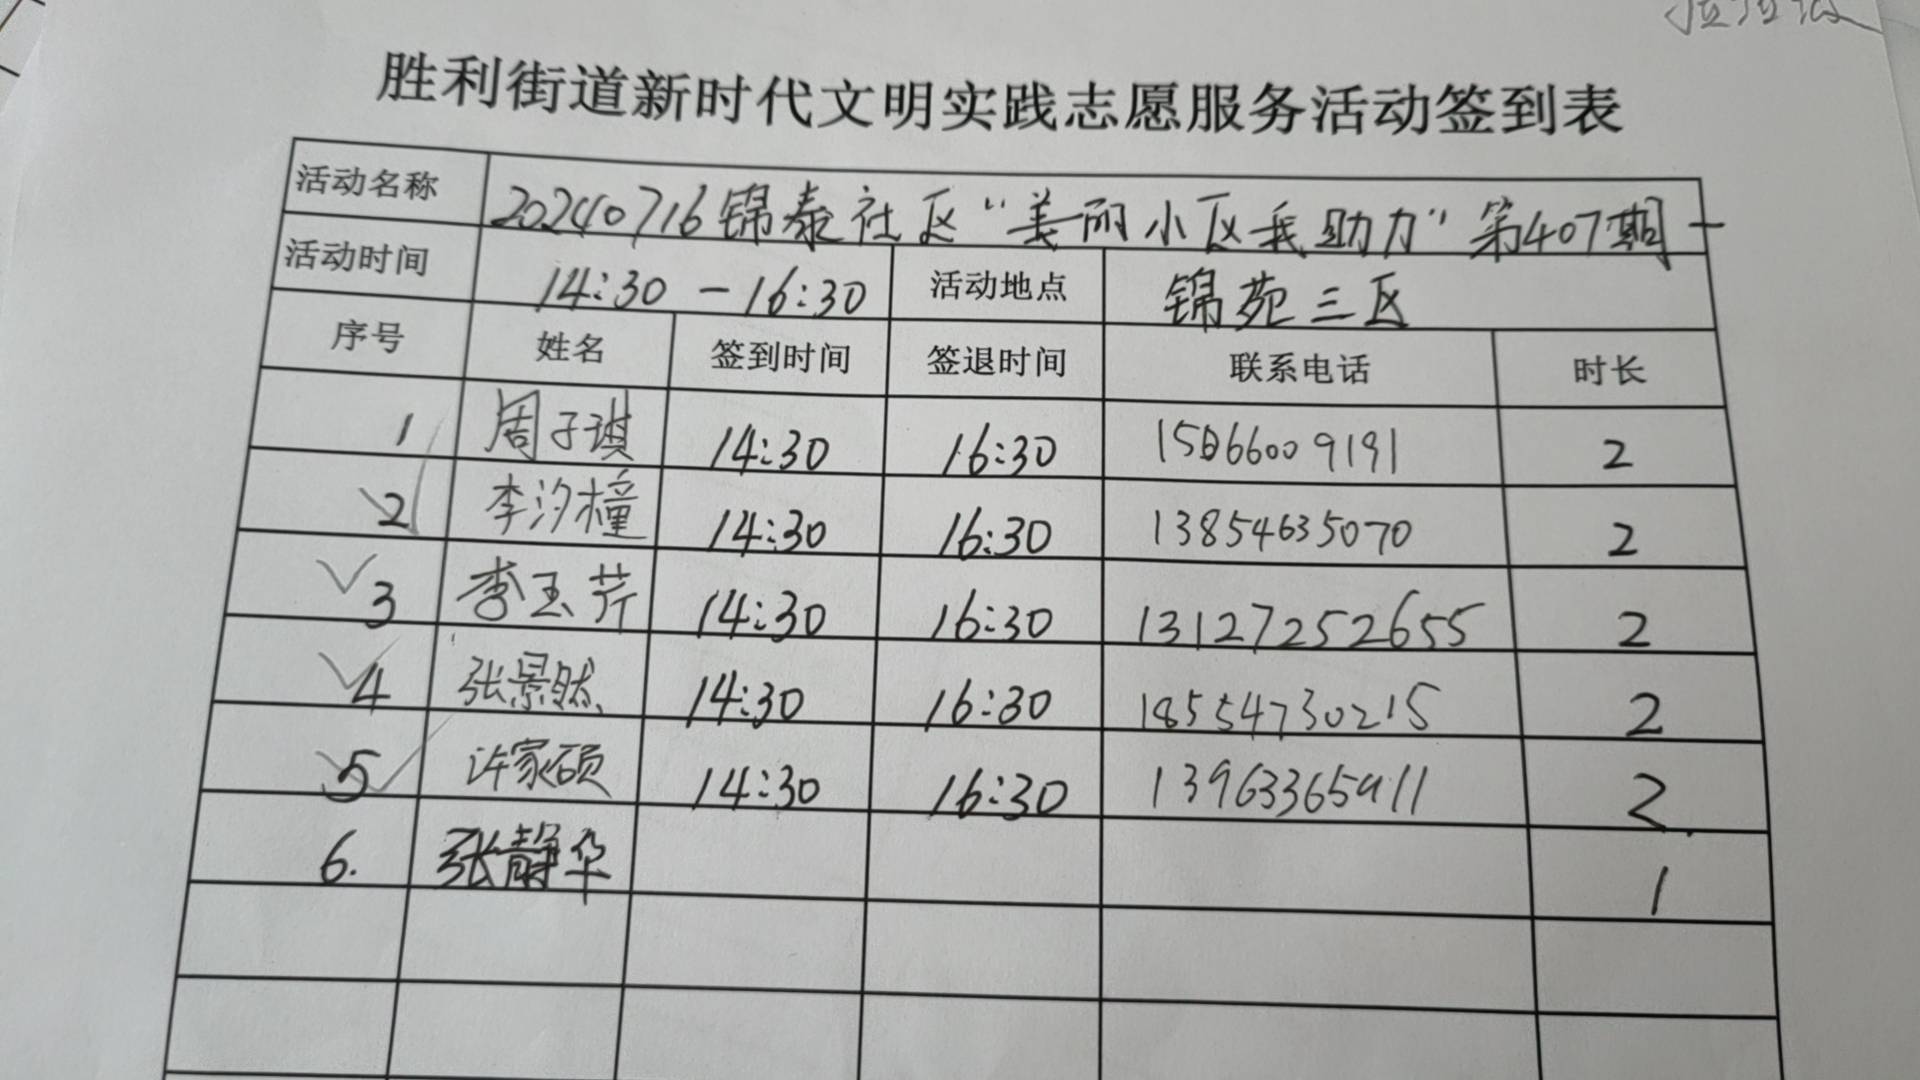 胜利街道新时代文明实践志愿服务活动签到表
活动名称 20240716锦泰社区“美丽小区我助力”第407期一
活动时间 14:30 - 16:30 活动地点 锦苑三区
序号 姓名 签到时间 签退时间 联系电话 时长
1 周子琪 14:30 16:30 15866009191 2
2 李汐橦 14:30 16:30 13854635070 2
3 李玉芹 14:30 16:30 13127252655 2
4 张景肽 14:30 16:30 18554730215 2
5 许家硕 14:30 16:30 13963365911 2
6. 张静华 1